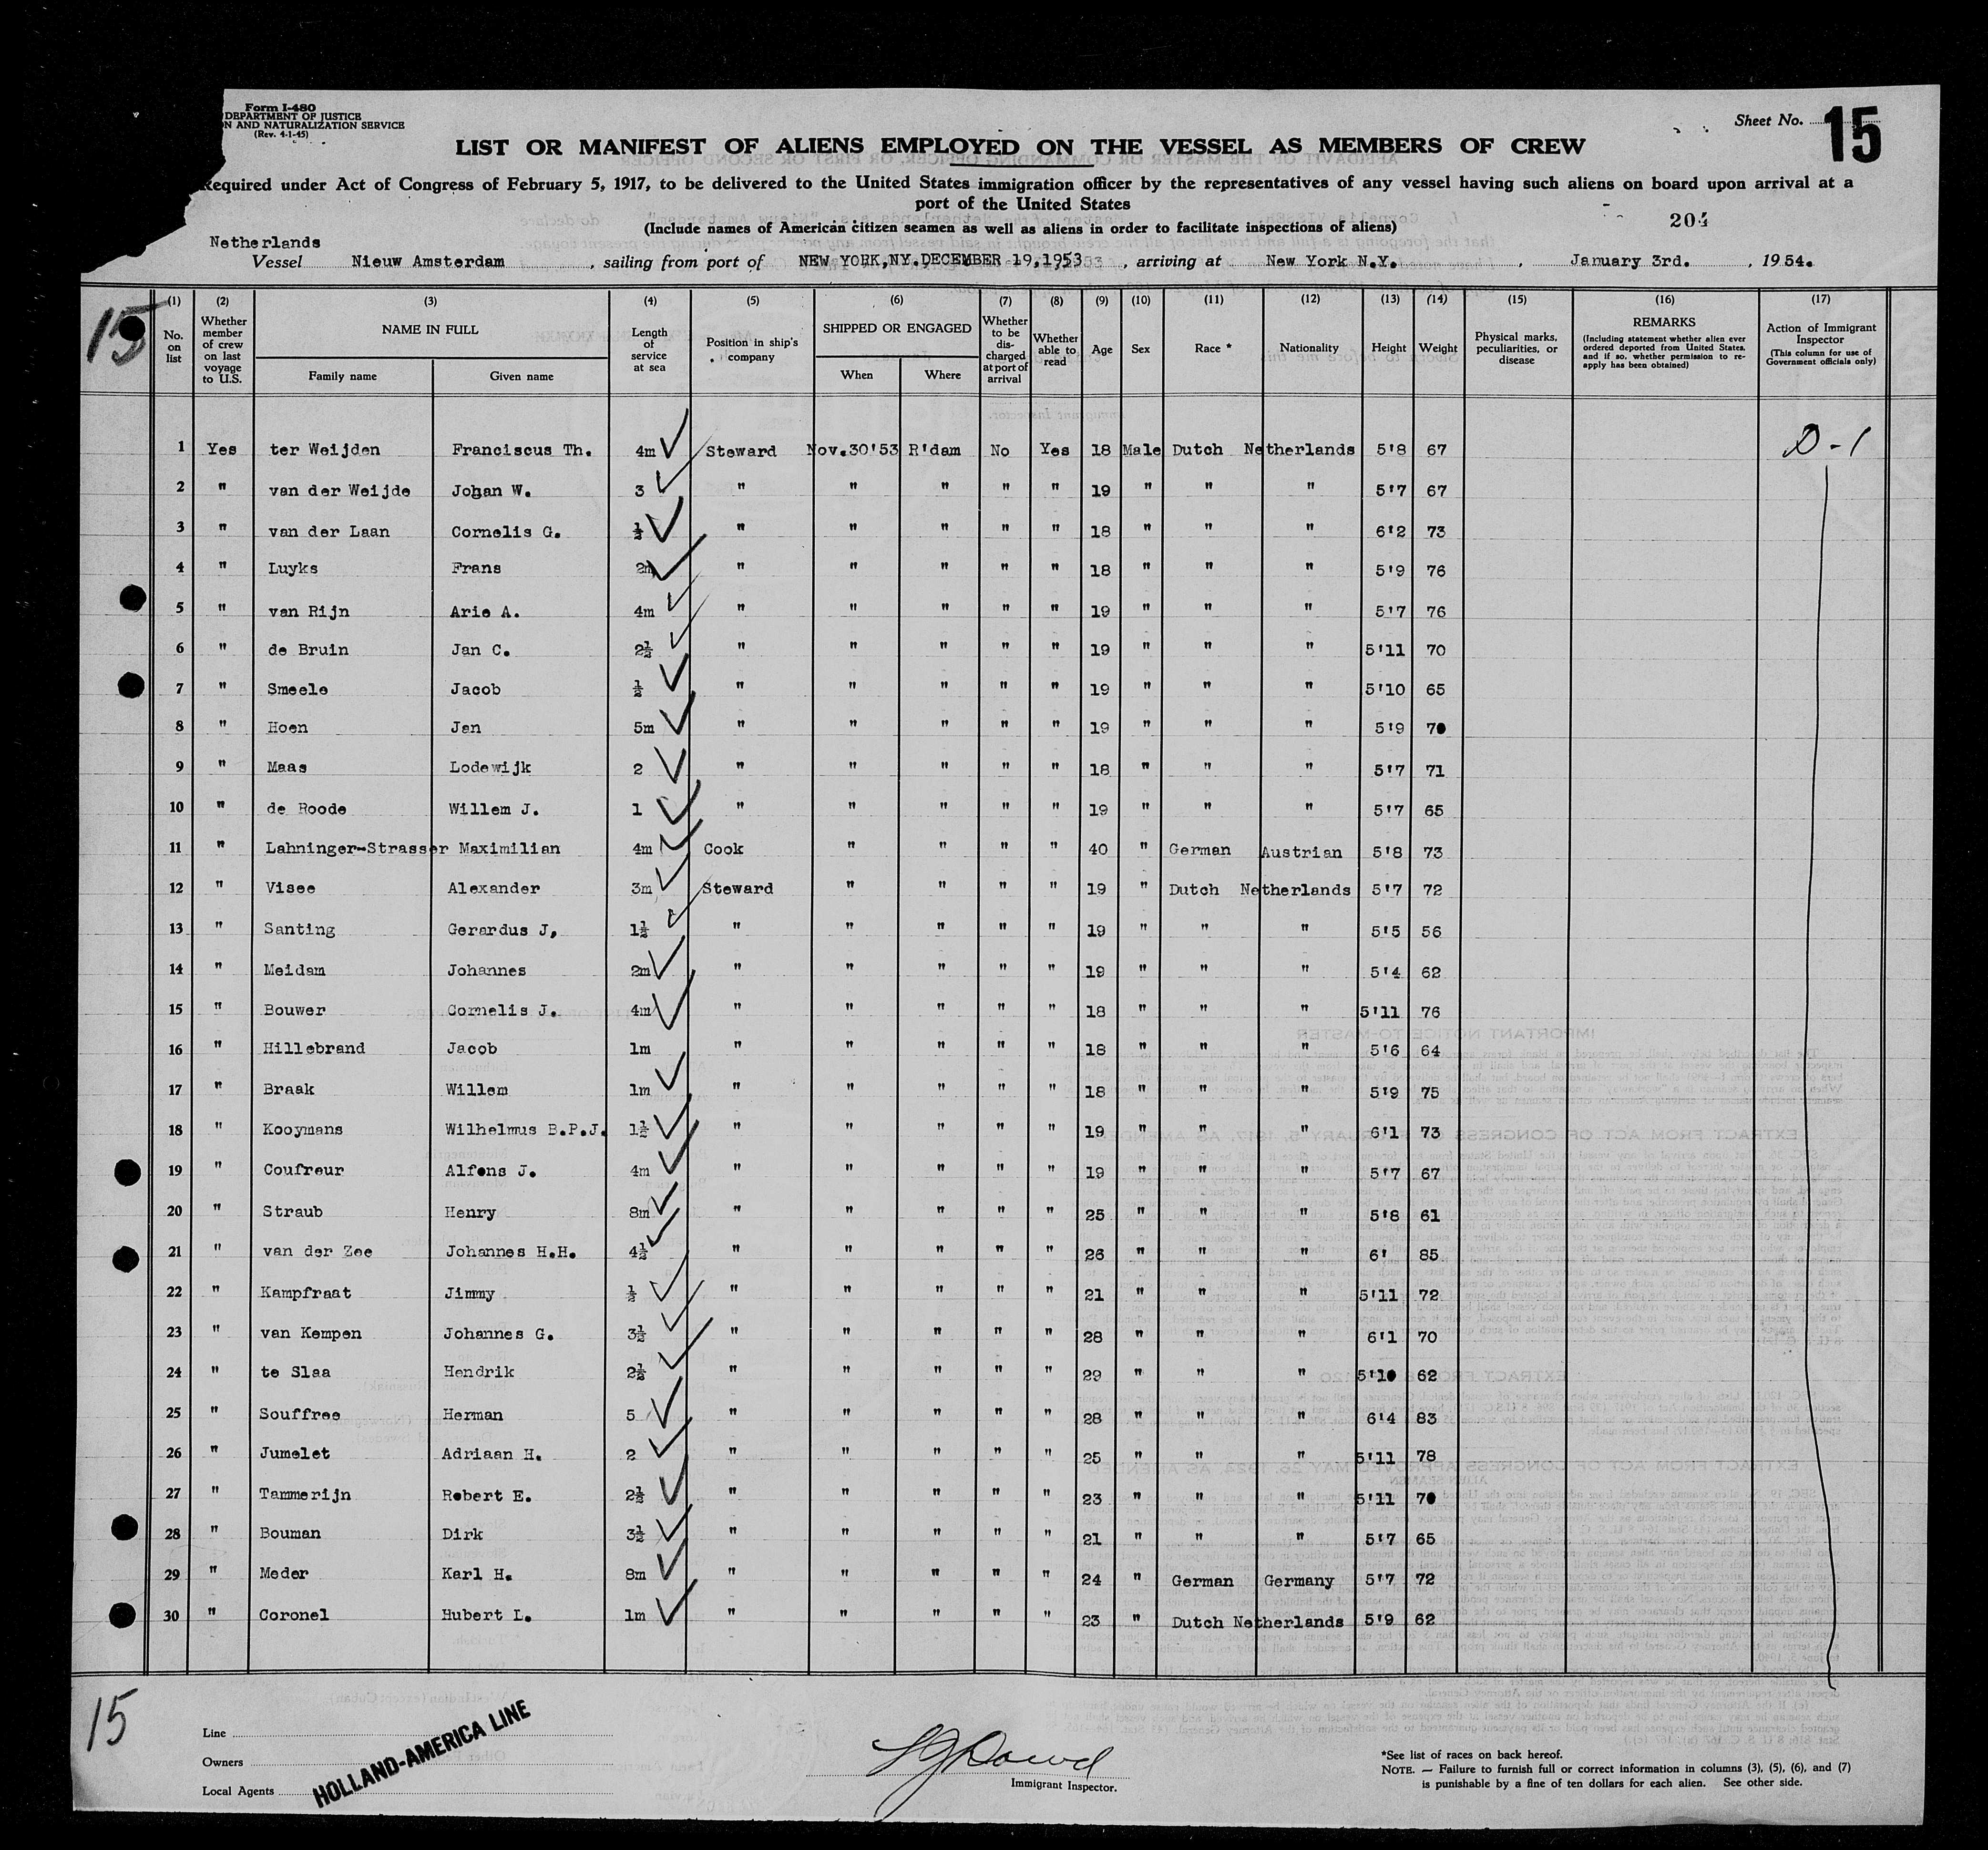 Form I-480
DEPARTMENT OF JUSTICE
N AND NATURALIZATION SERVICE
(Rev. 4-1-45)
Sheet No. 15
LIST OR MANIFEST OF ALIENS EMPLOYED ON THE VESSEL AS MEMBERS OF CREW
Required under Act of Congress of February 5, 1917, to be delivered to the United States immigration officer by the representatives of any vessel having such aliens on board upon arrival at a
port of the United States
204
(Include names of American citizen seamen as well as aliens in order to facilitate inspections of aliens)
Netherlands
Vessel Nieuw Amsterdam, sailing from port of NEW YORK,NY.DECEMBER 19,1953, arriving at New York N.Y., January 3rd., 1954.
15
(1) No. on list (2) Whether member of crew on last voyage to U.S. (3) NAME IN FULL Family name Given name (4) Length of service at sea (5) Position in ship's company (6) SHIPPED OR ENGAGED When Where (7) Whether to be discharged at port of arrival (8) Whether able to read (9) Age (10) Sex (11) Race * (12) Nationality (13) Height (14) Weight (15) Physical marks, peculiarities, or disease (16) REMARKS (Including statement whether alien ever ordered deported from United States, and if so, whether permission to re-apply has been obtained) (17) Action of Immigrant Inspector (This column for use of Government officials only)
1 Yes ter Weijden Franciscus Th. 4m Steward Nov.30'53 R'dam No Yes 18 Male Dutch Netherlands 5'8 67 D-1
2 " van der Weijde Johan W. 3 " " " " " 19 " " " 5'7 67
3 " van der Laan Cornelis G. ½ " " " " " 18 " " " 6'2 73
4 " Luyks Frans 2m " " " " " 18 " " " 5'9 76
5 " van Rijn Arie A. 4m " " " " " 19 " " " 5'7 76
6 " de Bruin Jan C. 2½ " " " " " 19 " " " 5'11 70
7 " Smeele Jacob ½ " " " " " 19 " " " 5'10 65
8 " Hoen Jan 5m " " " " " 19 " " " 5'9 70
9 " Maas Lodewijk 2 " " " " " 18 " " " 5'7 71
10 " de Roode Willem J. 1 " " " " " 19 " " " 5'7 65
11 " Lahninger-Strasser Maximilian 4m Cook " " " " 40 " German Austrian 5'8 73
12 " Visee Alexander 3m Steward " " " " 19 " Dutch Netherlands 5'7 72
13 " Santing Gerardus J, 1½ " " " " " 19 " " " 5'5 56
14 " Meidam Johannes 2m " " " " " 19 " " " 5'4 62
15 " Bouwer Cornelis J. 4m " " " " " 18 " " " 5'11 76
16 " Hillebrand Jacob 1m " " " " " 18 " " " 5'6 64
17 " Braak Willem 1m " " " " " 18 " " " 5'9 75
18 " Kooymans Wilhelmus B.P.J. 1½ " " " " " 19 " " " 6'1 73
19 " Coufreur Alfons J. 4m " " " " " 19 " " " 5'7 67
20 " Straub Henry 8m " " " " " 25 " " " 5'8 61
21 " van der Zee Johannes H.H. 4½ " " " " " 26 " " " 6' 85
22 " Kampfraat Jimmy ½ " " " " " 21 " " " 5'11 72
23 " van Kempen Johannes G. 3½ " " " " " 28 " " " 6'1 70
24 " te Slaa Hendrik 2½ " " " " " 29 " " " 5'10 62
25 " Souffree Herman 5 " " " " " 28 " " " 6'4 83
26 " Jumelet Adriaan H. 2 " " " " " 25 " " " 5'11 78
27 " Tammerijn Robert E. 2½ " " " " " 23 " " " 5'11 70
28 " Bouman Dirk 3½ " " " " " 21 " " " 5'7 65
29 " Meder Karl H. 8m " " " " " 24 " German Germany 5'7 72
30 " Coronel Hubert L. 1m " " " " " 23 " Dutch Netherlands 5'9 62
15
Line
Owners
Local Agents
HOLLAND-AMERICA LINE
Immigrant Inspector.
*See list of races on back hereof.
NOTE. — Failure to furnish full or correct information in columns (3), (5), (6), and (7)
is punishable by a fine of ten dollars for each alien. See other side.